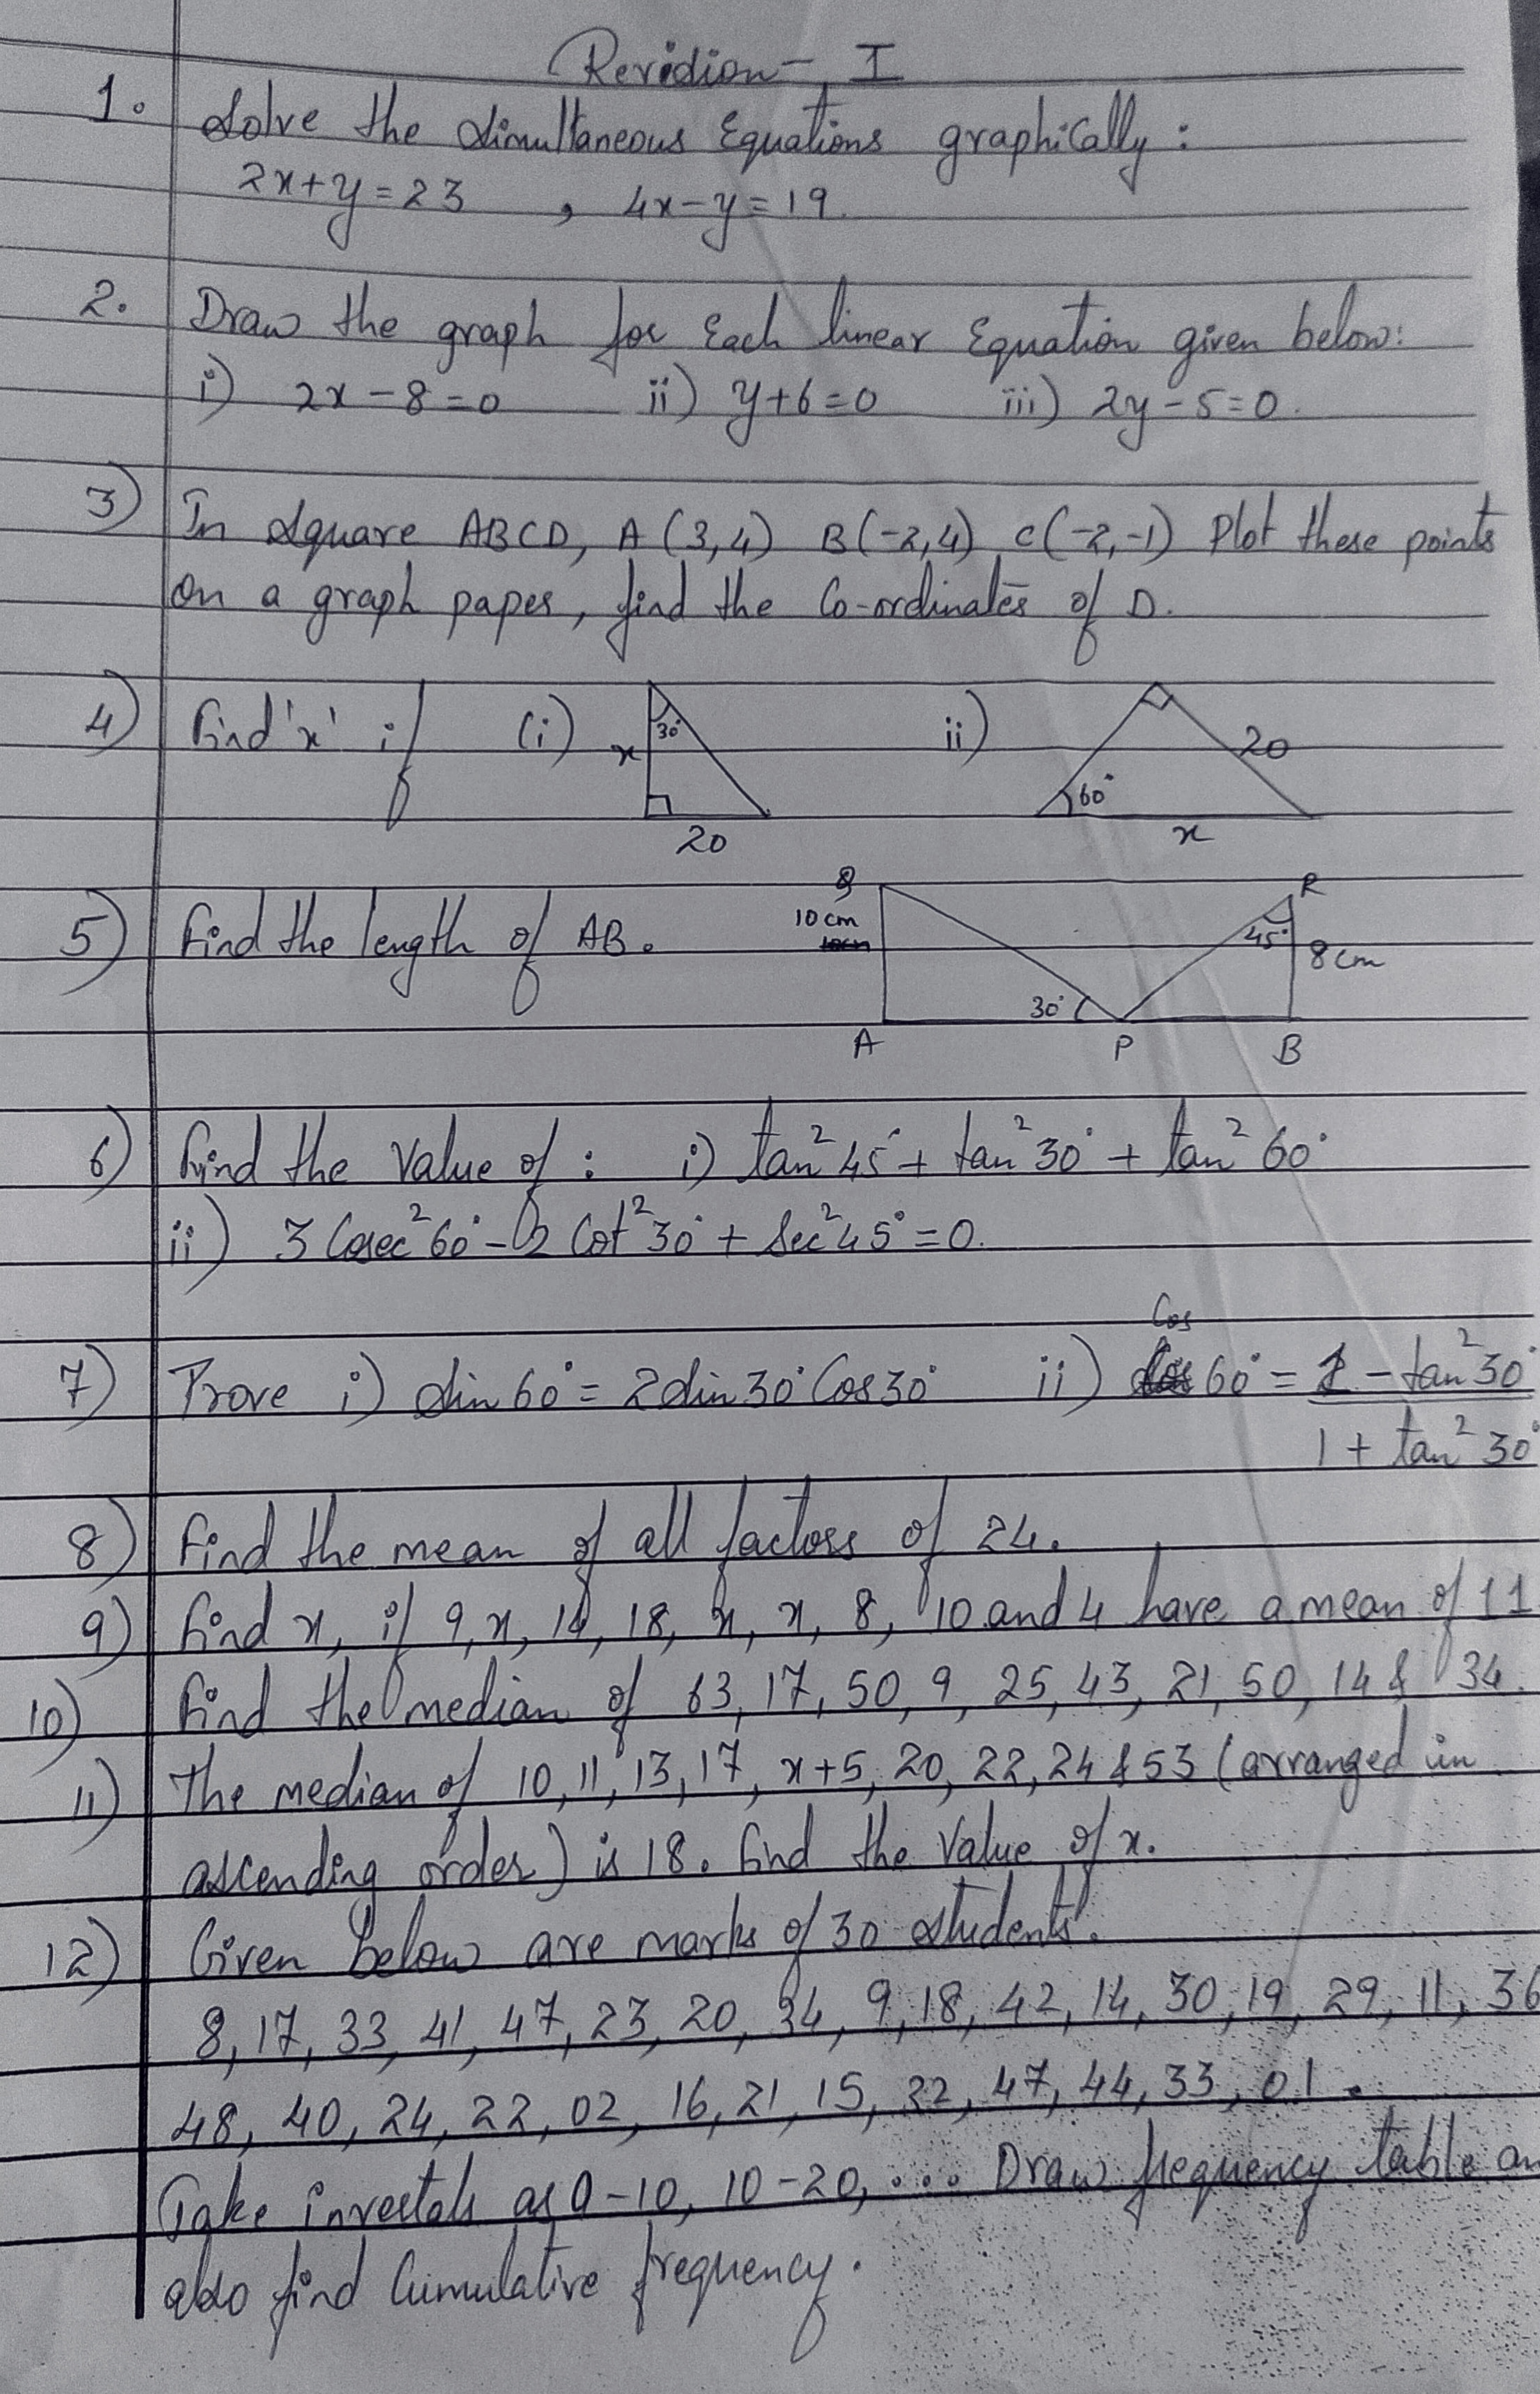 Revision - I
1. Solve the Simultaneous Equations graphically :
2x+y=23 , 4x-y=19.
2. Draw the graph for Each linear Equation given below:
i) 2x-8=0 ii) y+6=0 iii) 2y-5=0.
3) In square ABCD, A(3,4) B(-2,4) C(-2,-1) Plot these points
on a graph paper, find the Co-ordinates of D.
4) Find 'x' if (i) x 30° 20 ii) 60° 20 x
5) Find the length of AB. Q 10 cm A 30° P 45° R 8cm B
6) Find the Value of : i) tan²45° + tan²30° + tan²60°
ii) 3 Cosec²60° - 2 Cot²30° + Sec²45° = 0.
7) Prove i) Sin 60° = 2 Sin 30° Cos 30° ii) Cos 60° = 1 - tan²30°
1 + tan²30°
8) Find the mean of all factors of 24.
9) Find x, if 9, x, 14, 18, x, x, 8, 10 and 4 have a mean of 11
10) Find the median of 63, 17, 50, 9, 25, 43, 21, 50, 14 & 34.
11) The median of 10, 11, 13, 17, x+5, 20, 22, 24 & 53 (arranged in
ascending order) is 18. Find the Value of x.
12) Given below are marks of 30 students.
8, 17, 33, 41, 47, 23, 20, 34, 9, 18, 42, 14, 30, 19, 29, 11, 36
48, 40, 24, 22, 02, 16, 21, 15, 32, 47, 44, 33, 01.
Take as 0-10, 10-20, .... Draw frequency table an
also find Cumulative frequency.